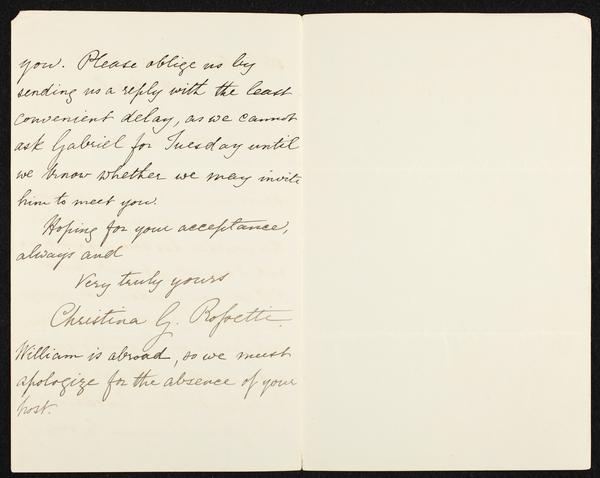 you. Please oblige us by
sending us a reply with the least
convenient delay, as we cannot
ask Gabriel for Tuesday until
we know whether we may invite
him to meet you.
Hoping for your acceptance,
always and
Very truly yours
Christina G. Rossetti.
William is abroad, so we must
apologize for the absence of your
host.